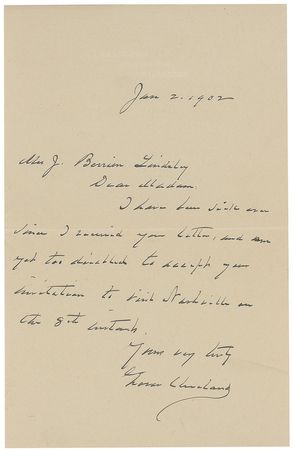 Jan 2. 1902
Mrs J. Berrien Lindsley
Dear Madam.
I have been sick ever
since I received your letter, and am
yet too disabled to accept your
invitation to visit Nashville on
the 8th instant.
Yours very truly
Grover Cleveland